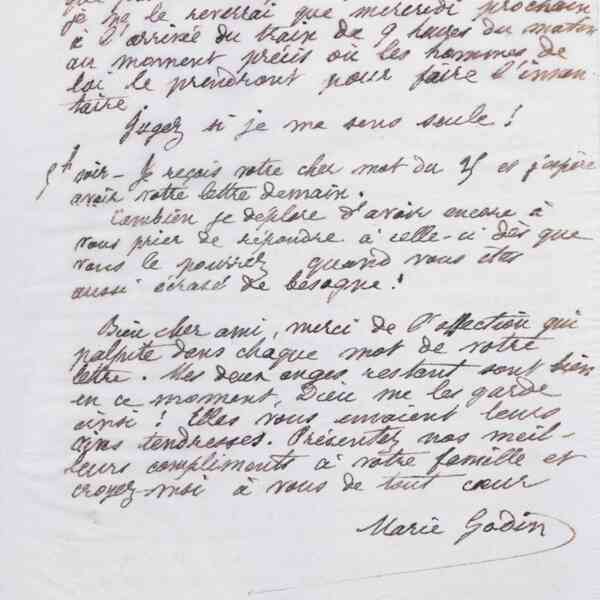 je ne le reverrai que mercredi prochain
à l'arrivée du train de 9 heures du matin
au moment précis où les hommes de
loi le prendront pour faire l'inven-
taire.
Jugez si je me sens seule !
5h soir - Je reçois votre cher mot du 25 et j'espère
avoir votre lettre demain.
Combien je déplore d'avoir encore à
vous prier de répondre à celle-ci dès que
vous le pourrez quand vous êtes
aussi écrasé de besogne !
Bien cher ami, merci de l'affection qui
palpite dans chaque mot de votre
lettre. Mes deux anges restent sont bien
en ce moment, Dieu me les garde
ainsi ! Elles vous envoient leurs
tendresses. Présentez nos meil-
leurs compliments à votre famille et
croyez-moi à vous de tout cœur
Marie Godin